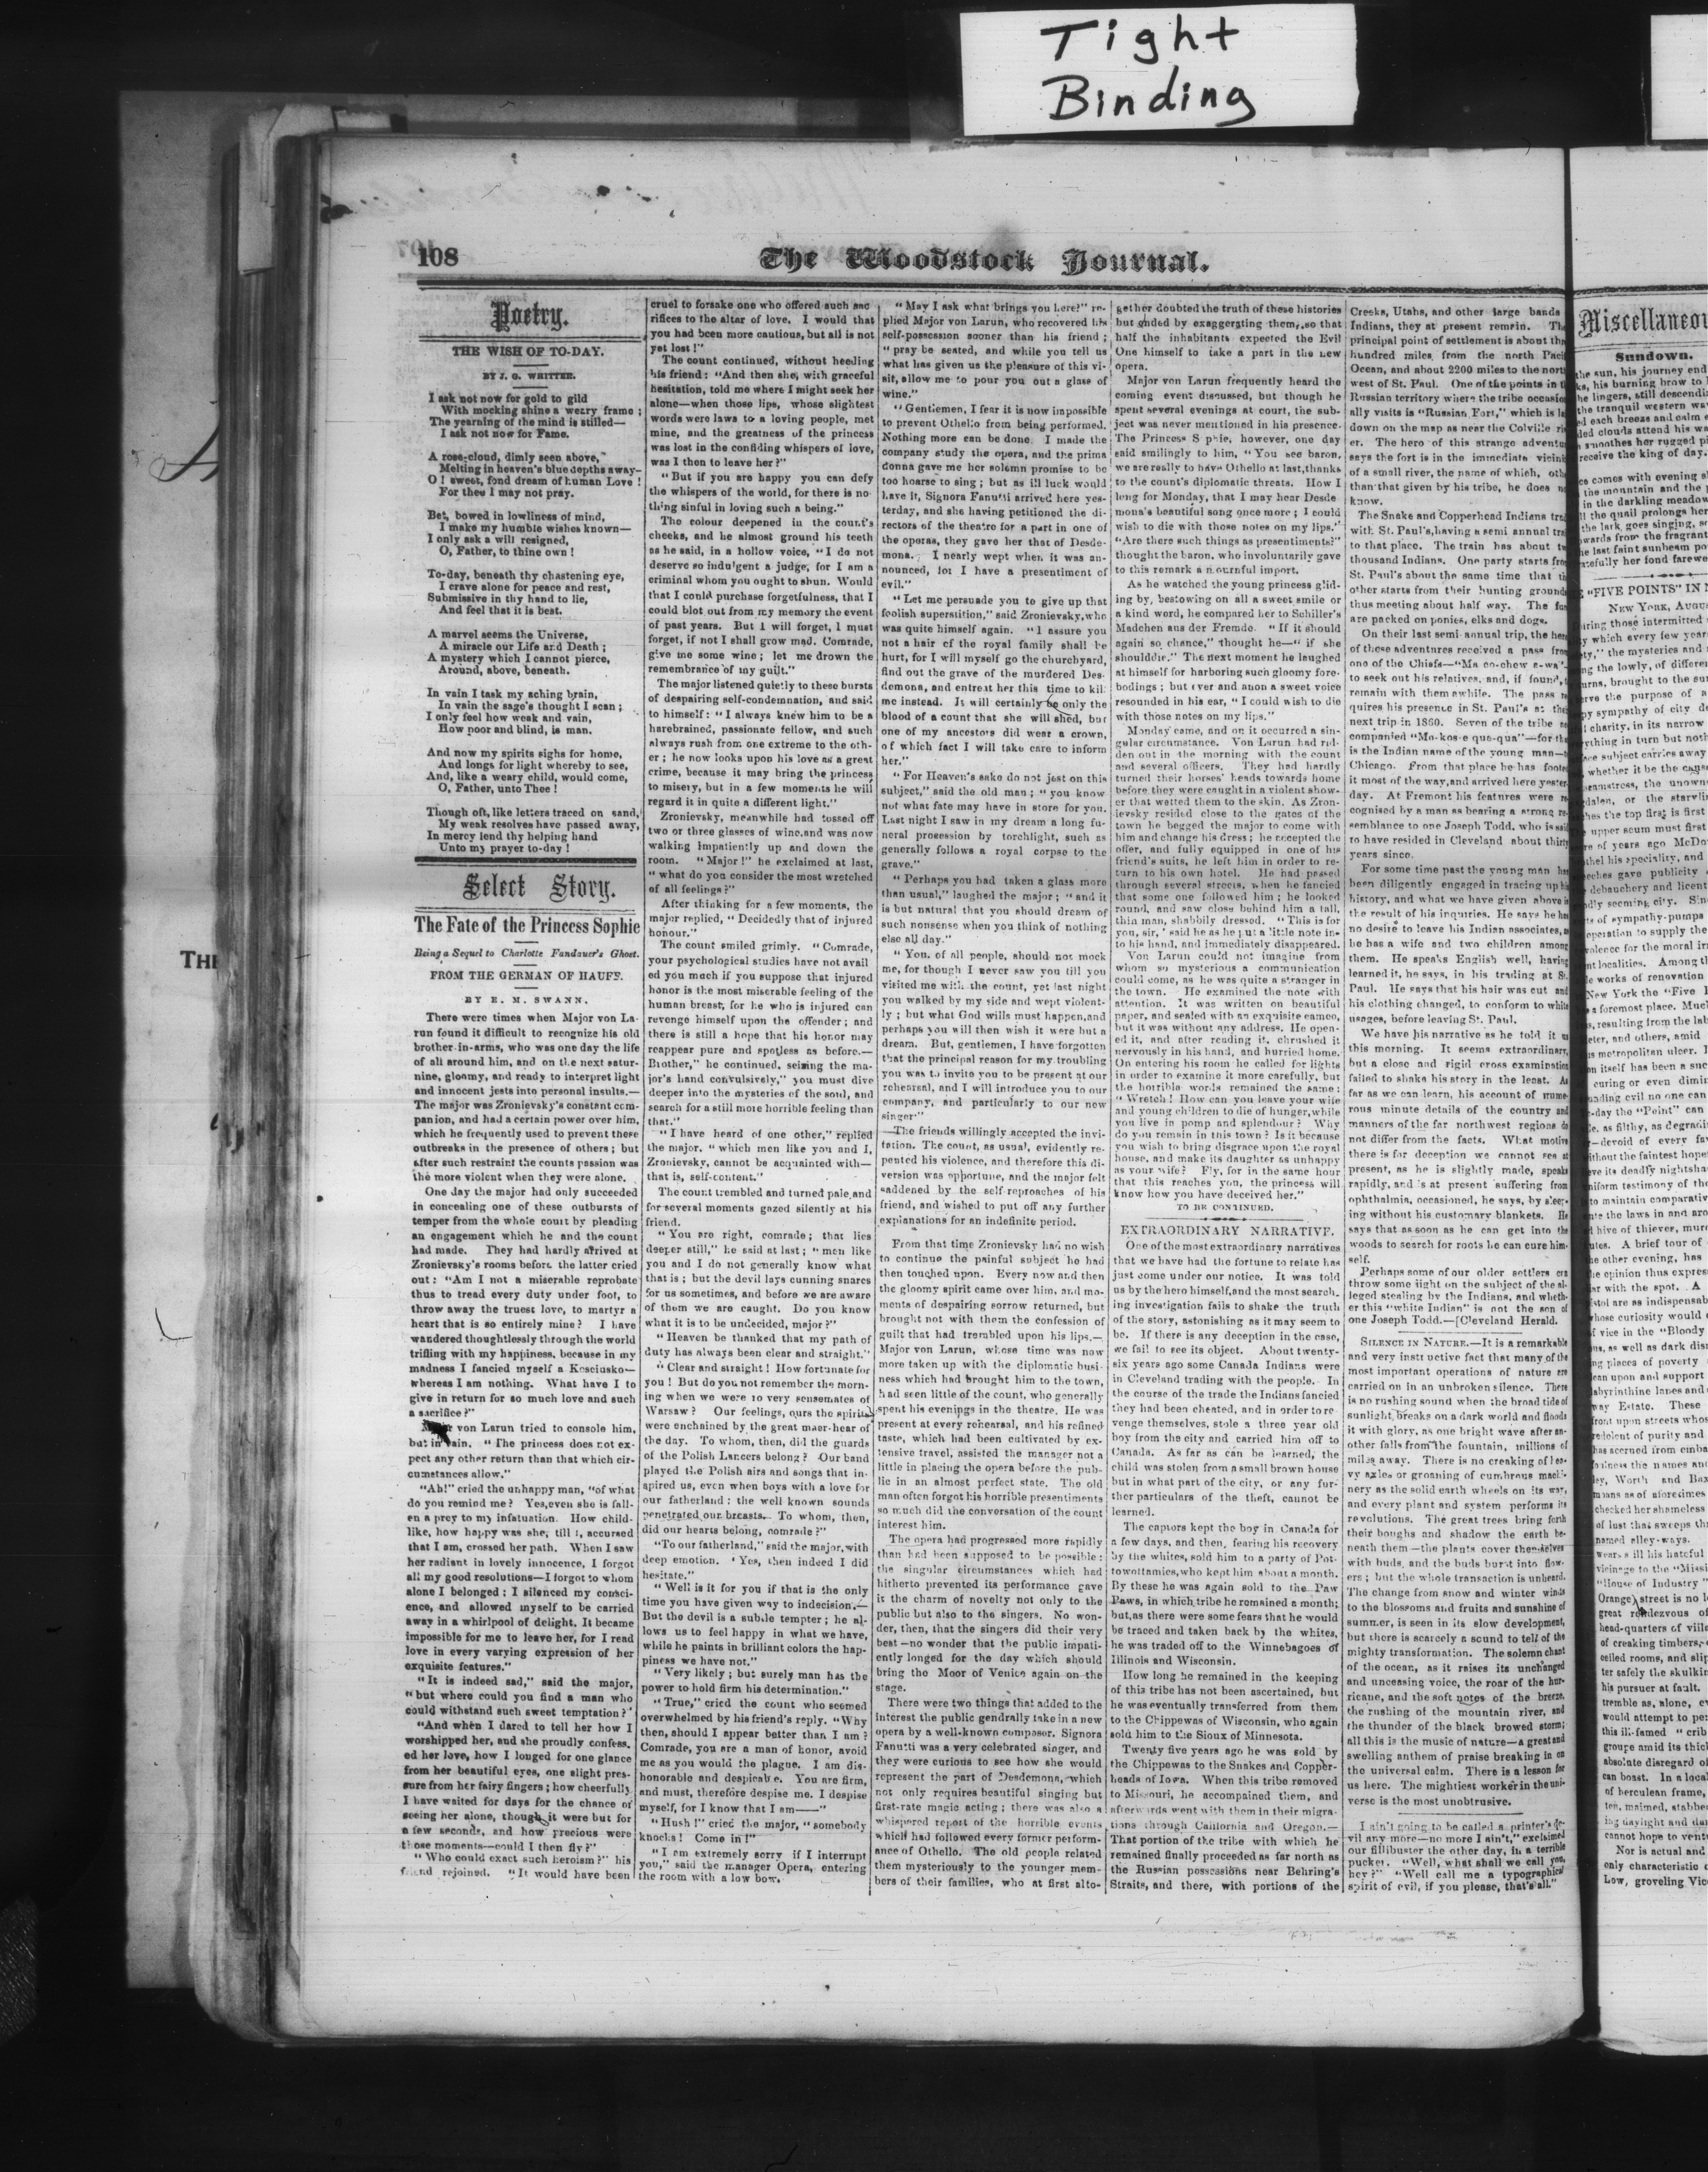 Tight
Binding
108
The Woodstock Journal.
Poetry.
THE WISH OF TO-DAY.
BY J. G. WHITTER.
I ask not now for gold to gild
With mocking shine a weary frame ;
The yearning of the mind is stilled—
I ask not now for Fame.
A rose-cloud, dimly seen above,
Melting in heaven's blue depths away—
O ! sweet, fond dream of human Love !
For thee I may not pray.
But, bowed in lowliness of mind,
I make my humble wishes known—
I only ask a will resigned,
O, Father, to thine own !
To-day, beneath thy chastening eye,
I crave alone for peace and rest,
Submissive in thy hand to lie,
And feel that it is best.
A marvel seems the Universe,
A miracle our Life and Death ;
A mystery which I cannot pierce,
Around, above, beneath.
In vain I task my aching brain,
In vain the sage's thought I scan ;
I only feel how weak and vain,
How poor and blind, is man.
And now my spirits sighs for home,
And longs for light whereby to see,
And, like a weary child, would come,
O, Father, unto Thee !
Though oft, like letters traced on sand,
My weak resolves have passed away,
In mercy lend thy helping hand
Unto my prayer to-day !
Select Story.
The Fate of the Princess Sophie
Being a Sequel to Charlotte Fandauer's Ghost.
FROM THE GERMAN OF HAUFF.
BY E. M. SWANN.
There were times when Major von La-
run found it difficult to recognize his old
brother-in-arms, who was one day the life
of all around him, and on the next satur-
nine, gloamy, and ready to interpret light
and innocent jests into personal insults.—
The major was Zronievsky's constant com-
panion, and had a certain power over him,
which he frequently used to prevent these
outbreaks in the presence of others ; but
after such restraint the counts passion was
the more violent when they were alone.
One day the major had only succeeded
in concealing one of these outbursts of
temper from the whole court by pleading
an engagement which he and the count
had made. They had hardly arrived at
Zronievsky's rooms before the latter cried
out : "Am I not a miserable reprobate
thus to tread every duty under foot, to
throw away the truest love, to martyr a
heart that is so entirely mine ? I have
wandered thoughtlessly through the world
trifling with my happiness, because in my
madness I fancied myself a Kosciusko—
whereas I am nothing. What have I to
give in return for so much love and such
a sacrifice ?"
von Larun tried to console him,
but in vain. "The princess does not ex-
pect any other return than that which cir-
cumstances allow."
"Ah!" cried the unhappy man, "of what
do you remind me ? Yes, even she is fall-
en a prey to my infatuation. How child-
like, how happy was she, till I, accursed
that I am, crossed her path. When I saw
her radiant in lovely innocence, I forgot
all my good resolutions—I forgot to whom
alone I belonged ; I silenced my consci-
ence, and allowed myself to be carried
away in a whirlpool of delight. It became
impossible for me to leave her, for I read
love in every varying expression of her
exquisite features."
"It is indeed sad," said the major,
"but where could you find a man who
could withstand such sweet temptation ?"
"And when I dared to tell her how I
worshipped her, and she proudly confess-
ed her love, how I longed for one glance
from her beautiful eyes, one slight pres-
sure from her fairy fingers ; how cheerfully
I have waited for days for the chance of
seeing her alone, though it were but for
a few seconds, and how precious were
those moments—could I then fly ?"
"Who could exact such heroism ?" his
friend rejoined. "It would have been
cruel to forsake one who offered such sac
rifices to the altar of love. I would that
you had been more cautious, but all is not
yet lost !"
The count continued, without heeding
his friend : "And then she, with graceful
hesitation, told me where I might seek her
alone—when those lips, whose slightest
words were laws to a loving people, met
mine, and the greatness of the princess
was lost in the confiding whispers of love,
was I then to leave her ?"
"But if you are happy you can defy
the whispers of the world, for there is no-
thing sinful in loving such a being."
The colour deepened in the count's
cheeks, and he almost ground his teeth
as he said, in a hollow voice, "I do not
deserve so indulgent a judge, for I am a
criminal whom you ought to shun. Would
that I could purchase forgetfulness, that I
could blot out from my memory the event
of past years. But I will forget, I must
forget, if not I shall grow mad. Comrade,
give me some wine ; let me drown the
remembrance of my guilt."
The major listened quietly to these bursts
of despairing self-condemnation, and said
to himself : "I always knew him to be a
harebrained, passionate fellow, and such
always rush from one extreme to the oth-
er ; he now looks upon his love as a great
crime, because it may bring the princess
to misery, but in a few moments he will
regard it in quite a different light."
Zronievsky, meanwhile had tossed off
two or three glasses of wine, and was now
walking impatiently up and down the
room. "Major !" he exclaimed at last,
"what do you consider the most wretched
of all feelings ?"
After thinking for a few moments, the
major replied, "Decidedly that of injured
honour."
The count smiled grimly. "Comrade,
your psychological studies have not avail
ed you much if you suppose that injured
honor is the most miserable feeling of the
human breast, for he who is injured can
revenge himself upon the offender ; and
there is still a hope that his honor may
reappear pure and spotless as before.—
Brother," he continued, seizing the ma-
jor's hand convulsively," you must dive
deeper into the mysteries of the soul, and
search for a still more horrible feeling than
that."
"I have heard of one other," replied
the major, "which men like you and I,
Zronievsky, cannot be acquainted with—
that is, self-content."
The count trembled and turned pale, and
for several moments gazed silently at his
friend.
"You are right, comrade ; that lies
deeper still," he said at last ; "men like
you and I do not generally know what
that is ; but the devil lays cunning snares
for us sometimes, and before we are aware
of them we are caught. Do you know
what it is to be undecided, major ?"
"Heaven be thanked that my path of
duty has always been clear and straight."
"Clear and straight ! How fortunate for
you ! But do you not remember the morn-
ing when we were so very sensemates of
Warsaw ? Our feelings, ours the spirits
were enchained by the great maer-hear of
the day. To whom, then, did the guards
of the Polish Lancers belong ? Our band
played the Polish airs and songs that in-
spired us, even when boys with a love for
our fatherland : the well known sounds
penetrated our breasts. To whom, then,
did our hearts belong, comrade ?"
"To our fatherland," said the major, with
deep emotion. 'Yes, then indeed I did
hesitate."
"Well is it for you if that is the only
time you have given way to indecision.—
But the devil is a subtle tempter ; he al-
lows us to feel happy in what we have,
while he paints in brilliant colors the hap-
piness we have not."
"Very likely ; but surely man has the
power to hold firm his determination."
"True," cried the count who seemed
overwhelmed by his friend's reply. "Why
then, should I appear better than I am ?
Comrade, you are a man of honor, avoid
me as you would the plague. I am dis-
honorable and despicable. You are firm,
and must, therefore despise me. I despise
myself, for I know that I am——"
"Hush !" cried the major, "somebody
knocks ! Come in !"
"I am extremely sorry if I interrupt
you," said the manager Opera, entering
the room with a low bow.
"May I ask what brings you here?" re-
plied Major von Larun, who recovered his
self-possession sooner than his friend ;
"pray be seated, and while you tell us
what has given us the pleasure of this vi-
sit, allow me to pour you out a glass of
wine."
"Gentlemen, I fear it is now impossible
to prevent Othello from being performed.
Nothing more can be done. I made the
company study the opera, and the prima
donna gave me her solemn promise to be
too hoarse to sing ; but as ill luck would
have it, Signora Fanutti arrived here yes-
terday, and she having petitioned the di-
rectors of the theatre for a part in one of
the operas, they gave her that of Desde-
mona. I nearly wept when it was an-
nounced, for I have a presentiment of
evil."
"Let me persuade you to give up that
foolish superstition," said Zronievsky, who
was quite himself again. "I assure you
not a hair of the royal family shall be
hurt, for I will myself go the churchyard,
find out the grave of the murdered Des-
demona, and entreat her this time to kill
me instead. It will certainly be only the
blood of a count that she will shed, but
one of my ancestors did wear a crown,
of which fact I will take care to inform
her."
"For Heaven's sake do not jest on this
subject," said the old man ; "you know
not what fate may have in store for you.
Last night I saw in my dream a long fu-
neral procession by torchlight, such as
generally follows a royal corpse to the
grave."
"Perhaps you had taken a glass more
than usual," laughed the major ; "and it
is but natural that you should dream of
such nonsense when you think of nothing
else all day."
"You, of all people, should not mock
me, for though I never saw you till you
visited me with the count, yet last night
you walked by my side and wept violent-
ly ; but what God wills must happen, and
perhaps you will then wish it were but a
dream. But, gentlemen, I have forgotten
that the principal reason for my troubling
you was to invite you to be present at our
rehearsal, and I will introduce you to our
company, and particularly to our new
singer"
—The friends willingly accepted the invi-
tation. The count, as usual, evidently re-
pented his violence, and therefore this di-
version was opportune, and the major felt
saddened by the self-reproaches of his
friend, and wished to put off any further
explanations for an indefinite period.
From that time Zronievsky had no wish
to continue the painful subject he had
then touched upon. Every now and then
the gloomy spirit came over him, and mo-
ments of despairing sorrow returned, but
brought not with them the confession of
guilt that had trembled upon his lips.—
Major von Larun, whose time was now
more taken up with the diplomatic busi-
ness which had brought him to the town,
had seen little of the count, who generally
spent his evenings in the theatre. He was
present at every rehearsal, and his refined
taste, which had been cultivated by ex-
tensive travel, assisted the manager not a
little in placing the opera before the pub-
lic in an almost perfect state. The old
man often forgot his horrible presentiments
so much did the conversation of the count
interest him.
The opera had progressed more rapidly
than had been supposed to be possible :
the singular circumstances which had
hitherto prevented its performance gave
it the charm of novelty not only to the
public but also to the singers. No won-
der, then, that the singers did their very
best—no wonder that the public impati-
ently longed for the day which should
bring the Moor of Venice again on the
stage.
There were two things that added to the
interest the public gendrally take in a new
opera by a well-known composer. Signora
Fanutti was a very celebrated singer, and
they were curious to see how she would
represent the part of Desdemona, which
not only requires beautiful singing but
first-rate magic acting ; there was also a
whispered report of the horrible events
which had followed every former perform-
ance of Othello. The old people related
them mysteriously to the younger mem-
bers of their families, who at first alto-
gether doubted the truth of these histories
but ended by exaggerating them, so that
half the inhabitants expected the Evil
One himself to take a part in the new
opera.
Major von Larun frequently heard the
coming event discussed, but though he
spent several evenings at court, the sub-
ject was never mentioned in his presence.
The Princess S phie, however, one day
said smilingly to him, "You see baron,
we are really to have Othello at last, thanks
to the count's diplomatic threats. How I
long for Monday, that I may hear Desde
mona's beautiful song once more ; I could
wish to die with those notes on my lips."
"Are there such things as presentiments?"
thought the baron, who involuntarily gave
to this remark a mournful import.
As he watched the young princess glid-
ing by, bestowing on all a sweet smile or
a kind word, he compared her to Schiller's
Madchen aus der Fremde. "If it should
again so chance," thought he—"if she
shoulddie." The next moment he laughed
at himself for harboring such gloomy fore-
bodings ; but ever and anon a sweet voice
resounded in his ear, "I could wish to die
with those notes on my lips."
Monday came, and on it occurred a sin-
gular circumstance. Von Larun had rid-
den out in the morning with the count
and several officers. They had hardly
turned their horses' heads towards home
before they were caught in a violent show-
er that wetted them to the skin. As Zron-
ievsky resided close to the gates of the
town he begged the major to come with
him and change his dress ; he accepted the
offer, and fully equipped in one of his
friend's suits, he left him in order to re-
turn to his own hotel. He had passed
through several streets, when he fancied
that some one followed him ; he looked
round, and saw close behind him a tall,
thin man, shabbily dressed. "This is for
you, sir,' said he as he put a little note in-
to his hand, and immediately disappeared.
Von Larun could not imagine from
whom so mysterious a communication
could come, as he was quite a stranger in
the town. He examined the note with
attention. It was written on beautiful
paper, and sealed with an exquisite cameo,
but it was without any address. He open-
ed it, and after reading it, chrushed it
nervously in his hand, and hurried home.
On entering his room he called for lights
in order to examine it more carefully, but
the horrible words remained the same :
"Wretch ! How can you leave your wife
and young children to die of hunger, while
you live in pomp and splendour ? Why
do you remain in this town ? Is it because
you wish to bring disgrace upon the royal
house, and make its daughter as unhappy
as your wife ? Fly, for in the same hour
that this reaches you, the princess will
know how you have deceived her."
TO BE CONTINUED.
EXTRAORDINARY NARRATIVE.
One of the most extraordinary narratives
that we have had the fortune to relate has
just come under our notice. It was told
us by the hero himself, and the most search-
ing investigation fails to shake the truth
of the story, astonishing as it may seem to
be. If there is any deception in the case,
we fail to see its object. About twenty-
six years ago some Canada Indians were
in Cleveland trading with the people. In
the course of the trade the Indians fancied
they had been cheated, and in order to re-
venge themselves, stole a three year old
boy from the city and carried him off to
Canada. As far as can be learned, the
child was stolen from a small brown house
but in what part of the city, or any fur-
ther particulars of the theft, cannot be
learned.
The captors kept the boy in Canada for
a few days, and then, fearing his recovery
by the whites, sold him to a party of Pot-
towottamies, who kept him about a month.
By these he was again sold to the Paw
Paws, in which tribe he remained a month;
but, as there were some fears that he would
be traced and taken back by the whites,
he was traded off to the Winnebagoes of
Illinois and Wisconsin.
How long he remained in the keeping
of this tribe has not been ascertained, but
he was eventually transferred from them
to the Chippewas of Wisconsin, who again
sold him to the Sioux of Minnesota.
Twenty five years ago he was sold by
the Chippewas to the Snakes and Copper-
heads of Iowa. When this tribe removed
to Missouri, he accompained them, and
afterwards went with them in their migra-
tions through California and Oregon.—
That portion of the tribe with which he
remained finally proceeded as far north as
the Russian possessions near Behring's
Straits, and there, with portions of the
Creeks, Utahs, and other large bands
Indians, they at present remain. The
principal point of settlement is about
hundred miles from the north
Ocean, and about 2200 miles to the
west of St. Paul. One of the points in
Russian territory where the tribe
ally visits is "Russian Fort," which is
down on the map as near the Colville
er. The hero of this strange
says the fort is in the immediate
of a small river, the name of which,
than that given by his tribe, he does
know.
The Snake and Copperhead Indians
with St. Paul's, having a semi annual
to that place. The train has about
thousand Indians. One party starts
St. Paul's about the same time that
other starts from their hunting
thus meeting about half way. The
are packed on ponies, elks and dogs.
On their last semi-annual trip, the
of these adventures received a pass
one of the Chiefs—"Ma co-chow e-wa"—
to seek out his relatives, and, if found,
remain with them awhile. The pass
quires his presence in St. Paul's at
next trip in 1860. Seven of the tribe
companied "Ma-kos-e qua-qua"—for
is the Indian name of the young man—
Chicago. From that place he has
it most of the way, and arrived here yester-
day. At Fremont his features were re-
cognised by a man as bearing a strong re-
semblance to one Joseph Todd, who is said
to have resided in Cleveland about thirty
years since.
For some time past the young man has
been diligently engaged in tracing up his
history, and what we have given above is
the result of his inquiries. He says he has
no desire to leave his Indian associates, as
he has a wife and two children among
them. He speaks English well, having
learned it, he says, in his trading at St.
Paul. He says that his hair was cut and
his clothing changed, to conform to white
usages, before leaving St. Paul.
We have his narrative as he told it us
this morning. It seems extraordinary,
but a close and rigid cross examination
failed to shake his story in the least. As
far as we can learn, his account of nume-
rous minute details of the country and
manners of the far northwest regions do
not differ from the facts. What motive
there is for deception we cannot see at
present, as he is slightly made, speaks
rapidly, and is at present suffering from
ophthalmia, occasioned, he says, by sleep-
ing without his customary blankets. He
says that as soon as he can get into the
woods to search for roots he can cure him-
self.
Perhaps some of our older settlers can
throw some light on the subject of the al-
leged stealing by the Indians, and wheth-
er this "white Indian" is not the son of
one Joseph Todd.—[Cleveland Herald.
SILENCE IN NATURE.—It is a remarkable
and very instructive fact that many of the
most important operations of nature are
carried on in an unbroken silence. There
is no rushing sound when the broad tide of
sunlight breaks on a dark world and floods
it with glory, as one bright wave after an-
other falls from the fountain, millions of
miles away. There is no creaking of hea-
vy axles or groaning of cumbrous machi-
nery as the solid earth wheels on its way,
and every plant and system performs its
revolutions. The great trees bring forth
their boughs and shadow the earth be-
neath them—the plants cover themselves
with buds, and the buds burst into flow-
ers ; but the whole transaction is unheard.
The change from snow and winter winds
to the blossoms and fruits and sunshine of
summer, is seen in its slow development,
but there is scarcely a sound to tell of the
mighty transformation. The solemn chant
of the ocean, as it raises its unchanged
and unceasing voice, the roar of the hur-
ricane, and the soft notes of the breeze,
the rushing of the mountain river, and
the thunder of the black browed storm;
all this is the music of nature—a great and
swelling anthem of praise breaking in on
the universal calm. There is a lesson for
us here. The mightiest worker in the uni-
verse is the most unobtrusive.
I ain't going to be called a printer's de-
vil any more—no more I ain't," exclaimed
our fillibuster the other day, in a terrible
pucket. "Well, what shall we call you,
hey ?" "Well call me a typographical
spirit of evil, if you please, that's all."
Sundown.
"FIVE POINTS" IN